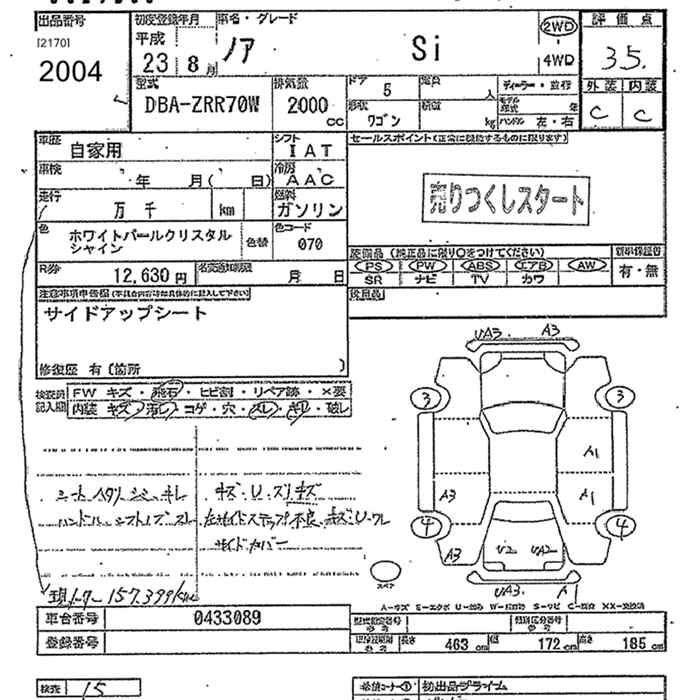 出品番号 初度登録年月 車名・グレード 2WD 評価点
[2170] 平成
2004 23 8月 ノア Si 4WD 3.5.
型式 排気量 ドア 5 定員 人 ディーラー・並行 外装 内装
DBA-ZRR70W 2000 cc 形状 ワゴン 積載 kg モデル年式 年 ハンドル 左・右 C C
車歴 自家用 シフト IAT セールスポイント(正常に機能するものに限ります)
車検 年 月( 日) 冷房 AAC
売りつくしスタート
走行 万 千 km 燃料 ガソリン
色 ホワイトパールクリスタルシャイン 色替 色コード 070
装備品 (純正品に限り○をつけてください) 新車保証書
PS PW ABS エアB AW 有・無
SR ナビ TV カワ
R券 12,630円 名変通知期限 月 日
後日品
注意事項申告欄
サイドアップシート
修復歴 有(箇所 )
検査員記入欄 FW キズ・飛石・ヒビ割・リペア跡・×要
内装 キズ・汚レ・コゲ・穴・スレ・キレ・破レ
UA3. A3
3 3
A1
A3 A1
4 4
A3 U2 UA2
UA3. A
シート キレ キズ・U・スリキズ
ハンドル 左サイドステップ不良
サイドカバー
スペア
現メーター 157,399km
車台番号 0433089
登録番号
型式指定番号 類別区分番号
長さ 463 cm 幅 172 cm 高さ 185 cm
検査 15
希望コーナー① 初出品プライム